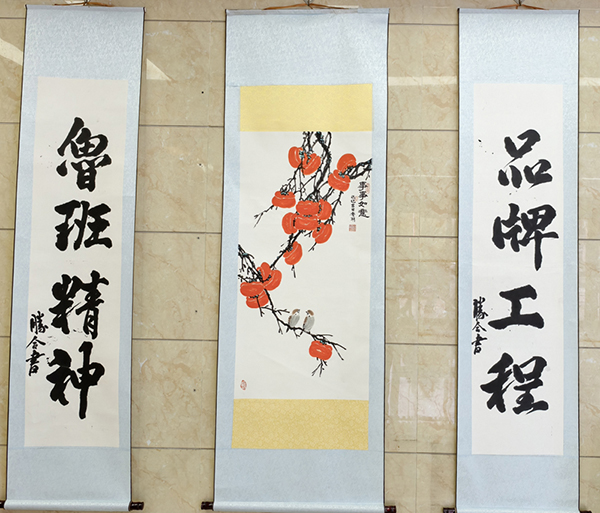 魯班精神
勝全書
事事如意
品牌工程
勝全書